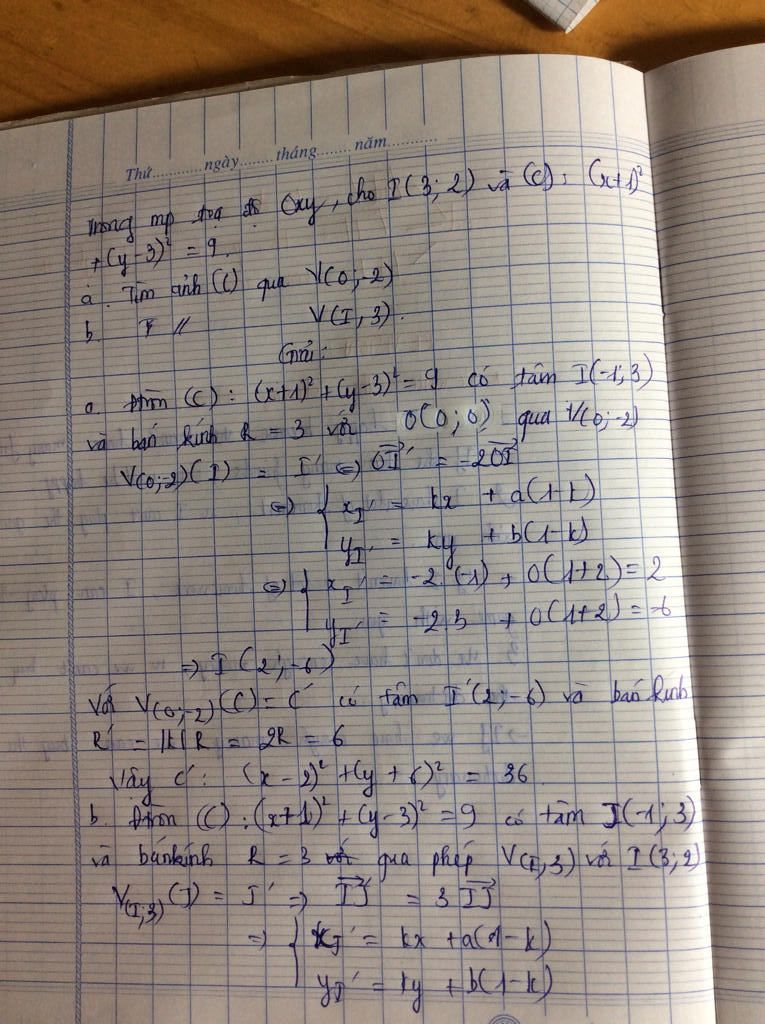 Thứ............ngày........tháng........năm............
Trong mp toạ độ Oxy, cho I(3; 2) và (C): (x+1)²
+ (y-3)² = 9.
a. Tìm ảnh (C) qua V(O;-2)
b. I // V(I, 3).
Giải:
a. Đtròn (C): (x+1)² + (y-3)² = 9 có tâm I(-1; 3)
và bán kính R = 3 với O(0; 0) qua V(O;-2)
V(O;-2)(I) = I' ⇔ OI' = -2OI
⇔ { x_I' = kx + a(1-k)
y_I' = ky + b(1-k)
⇔ { x_I' = -2.(-1) + 0(1+2) = 2
y_I' = -2.3 + 0(1+2) = -6
⇒ I'(2; -6)
Với V(O;-2)(C) = C' có tâm I'(2; -6) và bán kính
R' = |k|R = 2R = 6
Vậy C': (x-2)² + (y+6)² = 36
b. Đtròn (C): (x+1)² + (y-3)² = 9 có tâm J(-1; 3)
và bán kính R = 3 với qua phép V(I,3) với I(3; 2)
V(I;3)(J) = J' ⇒ IJ' = 3 IJ
⇒ { x_J' = kx + a(1-k)
y_J' = ky + b(1-k)